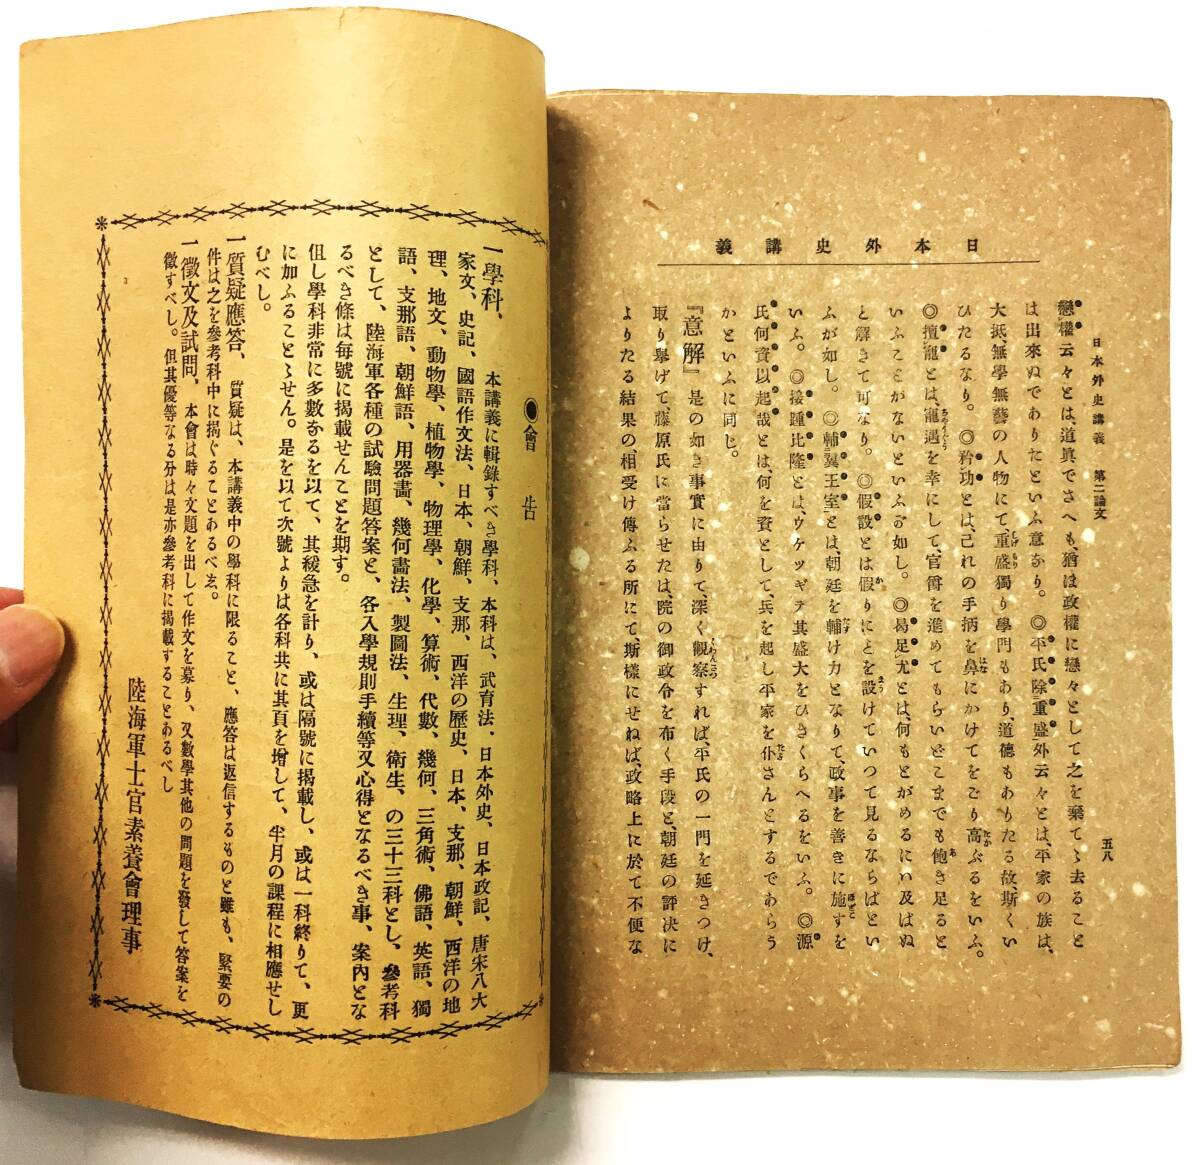 日本外史講義
日本外史講義 第二論文 五八
戀權云々とは、道眞でさへも、猶ほ政權に戀々として之を棄てゝ去ること
は出來ぬでありたといふ意なり。◎平氏除重盛外云々とは、平家の族は、
大抵、無學無藝の人物にて、重盛獨り學門もあり、道德もありたる故、斯くい
ひたるなり。◎矜功とは、己れの手柄を鼻にかけてをごり高ぶるをいふ。
◎擅寵とは、寵遇を幸にして、官爵を進めてもらいどこまでも飽き足ると
いふことがないといふが如し。◎曷足尤とは、何もとがめるにい及ばぬ
と解きて可なり。◎假設とは假りにとを設けていつて見るならばとい
ふが如し。◎輔翼王室とは、朝廷を輔け力となりて、政事を善きに施すを
いふ。◎接踵比隆とは、ウケツギテ其盛大をひきくらべるをいふ。◎源
氏何資以起哉とは、何を資として、兵を起し平家を仆さんとするであらう
かといふに同じ。
『意解』是の如き事實に由りて、深く觀察すれば、平氏の一門を延きつけ、
取り擧げて、藤原氏に當らせたは、院の御政令を布く手段と、朝廷の評決に
よりたる結果の、相受け傳ふる所にて斯樣にせねば、政略上に於て不便な
◉會告
一學科、本講義に輯錄すべき學科、本科は、武育法、日本外史、日本政記、唐宋八大
家文、史記、國語作文法、日本、朝鮮、支那、西洋の歷史、日本、支那、朝鮮、西洋の地
理、地文、動物學、植物學、物理學、化學、算術、代數、幾何、三角術、佛語、英語、獨
語、支那語、朝鮮語、用器畵、幾何畵法、製圖法、生理、衛生、の三十三科とし、參考科
として、陸海軍各種の試驗問題答案と、各入學規則手續等又心得となるべき事、案內とな
るべき條は每號に揭載せんことを期す。
伹し學科非常に多數なるを以て、其緩急を計り、或は隔號に揭載し、或は一科終りて、更
に加ふることゝせん。是を以て次號よりは各科共に其頁を增して、半月の課程に相應せし
むべし。
一質疑應答、質疑は、本講義中の學科に限ること、應答は返信するものと雖も、緊要の
件は之を參考科中に揭ぐることあるべゑ。
一徵文及試問、本會は時々文題を出して作文を募り、又數學其他の問題を發して答案を
徵すべし。但其優等なる分は是亦參考科に揭載することあるべし
陸海軍士官素養會理事